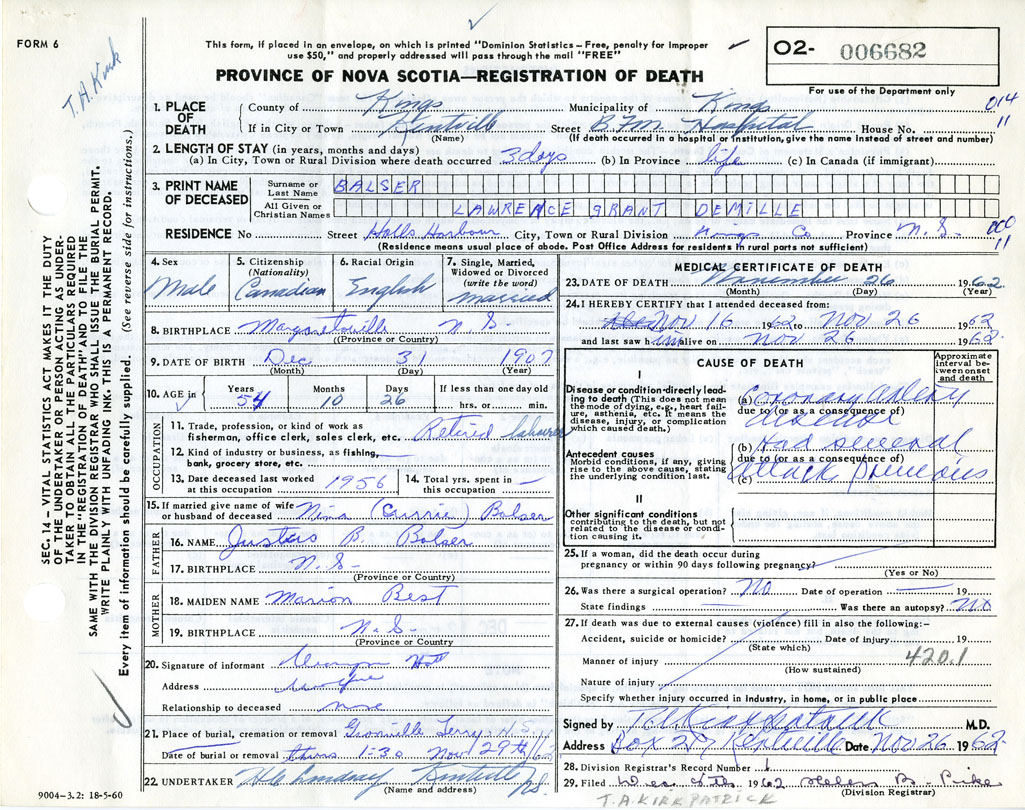 FORM 6
T.A. Kirk
This form, if placed in an envelope, on which is printed "Dominion Statistics – Free, penalty for improper
use $50," and properly addressed will pass through the mail "FREE"
O2- 006682
PROVINCE OF NOVA SCOTIA—REGISTRATION OF DEATH
For use of the Department only
1. PLACE OF DEATH
County of Kings Municipality of Kings 014
If in City or Town Kentville Street B.F.M. Hospital House No. 11
(If death occurred in a hospital or institution, give the name instead of street and number)
2. LENGTH OF STAY (in years, months and days)
(a) In City, Town or Rural Division where death occurred 3 days (b) In Province life (c) In Canada (if immigrant)
3. PRINT NAME OF DECEASED
Surname or Last Name BALSER
All Given or Christian Names LAWRENCE GRANT DEMILLE
RESIDENCE No Street Halls Harbour City, Town or Rural Division Kings Co Province N.S. 000 11
(Residence means usual place of abode. Post Office Address for residents in rural parts not sufficient)
4. Sex Male
5. Citizenship (Nationality) Canadian
6. Racial Origin English
7. Single, Married, Widowed or Divorced (write the word) married
8. BIRTHPLACE Margaretsville N.S-
(Province or Country)
9. DATE OF BIRTH Dec 31 1907
(Month) (Day) (Year)
10. AGE in Years 54 Months 10 Days 26 If less than one day old hrs. or min.
OCCUPATION
11. Trade, profession, or kind of work as
fisherman, office clerk, sales clerk, etc. Retired labourer
12. Kind of industry or business, as fishing,
bank, grocery store, etc.
13. Date deceased last worked
at this occupation 1956
14. Total yrs. spent in
this occupation
15. If married give name of wife
or husband of deceased Nina (Currie) Balser
FATHER
16. NAME Justus B. Balser
17. BIRTHPLACE N.S-
(Province or Country)
MOTHER
18. MAIDEN NAME Marion Best
19. BIRTHPLACE N.S-
(Province or Country
20. Signature of informant
Address
Relationship to deceased none
21. Place of burial, cremation or removal N.S.
Date of burial or removal thurs 1:30 Nov 29th/62
22. UNDERTAKER Kentville NS.
(Name and address)
9004-3.2: 18-5-60
MEDICAL CERTIFICATE OF DEATH
23. DATE OF DEATH November 26 1962
(Month) (Day) (Year)
24. I HEREBY CERTIFY that I attended deceased from:
Nov 16 1962 to Nov 26 1962
and last saw him alive on Nov 26 1962
CAUSE OF DEATH
Approximate interval between onset and death
I
Disease or condition directly lead-
ing to death (This does not mean
the mode of dying, e.g., heart fail-
ure, asthenia, etc. It means the
disease, injury, or complication
which caused death.)
(a) Coronary Artery
due to (or as a consequence of)
disease
Antecedent causes
Morbid conditions, if any, giving
rise to the above cause, stating
the underlying condition last.
(b) Had several
due to (or as a consequence of)
(c) attacks previous
II
Other significant conditions
contributing to the death, but not
related to the disease or condi-
tion causing it.
25. If a woman, did the death occur during
pregnancy or within 90 days following pregnancy?
(Yes or No)
26. Was there a surgical operation? No Date of operation 19
State findings Was there an autopsy? No
27. If death was due to external causes (violence) fill in also the following:–
Accident, suicide or homicide? Date of injury 19
(State which)
Manner of injury 420.1
(How sustained)
Nature of injury
Specify whether injury occurred in industry, in home, or in public place
Signed by T A Kirkpatrick M.D.
Address Box 217 Kentville Date Nov 26 1962
28. Division Registrar's Record Number
29. Filed 1962
(Division Registrar)
T.A. KIRKPATRICK
SEC. 14 – VITAL STATISTICS ACT MAKES IT THE DUTY
OF THE UNDERTAKER OR PERSON ACTING AS UNDER-
TAKER TO OBTAIN ALL THE PARTICULARS REQUIRED
IN THE "REGISTRATION OF DEATH" AND TO FILE THE
SAME WITH THE DIVISION REGISTRAR WHO SHALL ISSUE THE BURIAL PERMIT.
WRITE PLAINLY WITH UNFADING INK. THIS IS A PERMANENT RECORD.
Every item of information should be carefully supplied. (See reverse side for instructions.)